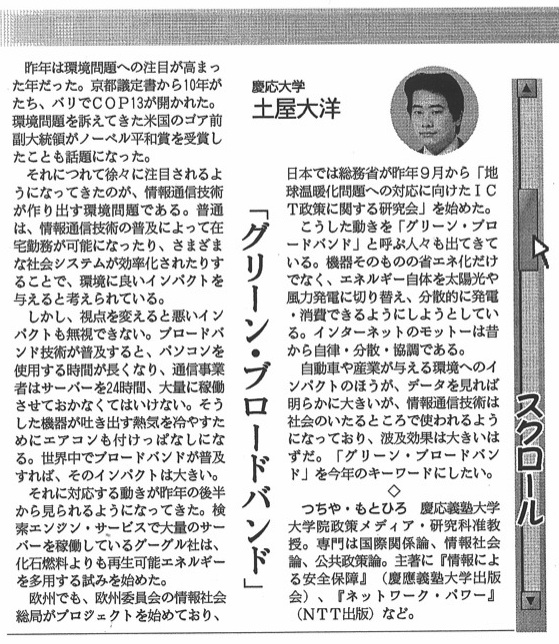 慶応大学
土屋大洋
「グリーン・ブロードバンド」
スクロール
昨年は環境問題への注目が高まっ
た年だった。京都議定書から10年が
たち、バリでCOP13が開かれた。
環境問題を訴えてきた米国のゴア前
副大統領がノーベル平和賞を受賞し
たことも話題になった。
それにつれて徐々に注目されるよ
うになってきたのが、情報通信技術
が作り出す環境問題である。普通
は、情報通信技術の普及によって在
宅勤務が可能になったり、さまざま
な社会システムが効率化されたりす
ることで、環境に良いインパクトを
与えると考えられている。
しかし、視点を変えると悪いイン
パクトも無視できない。ブロードバ
ンド技術が普及すると、パソコンを
使用する時間が長くなり、通信事業
者はサーバーを24時間、大量に稼働
させておかなくてはいけない。そう
した機器が吐き出す熱気を冷やすた
めにエアコンも付けっぱなしにな
る。世界中でブロードバンドが普及
すれば、そのインパクトは大きい。
それに対応する動きが昨年の後半
から見られるようになってきた。検
索エンジン・サービスで大量のサー
バーを稼働しているグーグル社は、
化石燃料よりも再生可能エネルギー
を多用する試みを始めた。
欧州でも、欧州委員会の情報社会
総局がプロジェクトを始めており、
日本では総務省が昨年9月から「地
球温暖化問題への対応に向けたIC
T政策に関する研究会」を始めた。
こうした動きを「グリーン・ブロ
ードバンド」と呼ぶ人々も出てきて
いる。機器そのものの省エネ化だけ
でなく、エネルギー自体を太陽光や
風力発電に切り替え、分散的に発電
・消費できるようにしようとしてい
る。インターネットのモットーは昔
から自律・分散・協調である。
自動車や産業が与える環境へのイ
ンパクトのほうが、データを見れば
明らかに大きいが、情報通信技術は
社会のいたるところで使われるよう
になっており、波及効果は大きいは
ずだ。「グリーン・ブロードバン
ド」を今年のキーワードにしたい。
◇
つちや・もとひろ 慶応義塾大学
大学院政策メディア・研究科准教
授。専門は国際関係論、情報社会
論、公共政策論。主著に『情報によ
る安全保障』(慶應義塾大学出版
会)、『ネットワーク・パワー』
(NTT出版)など。